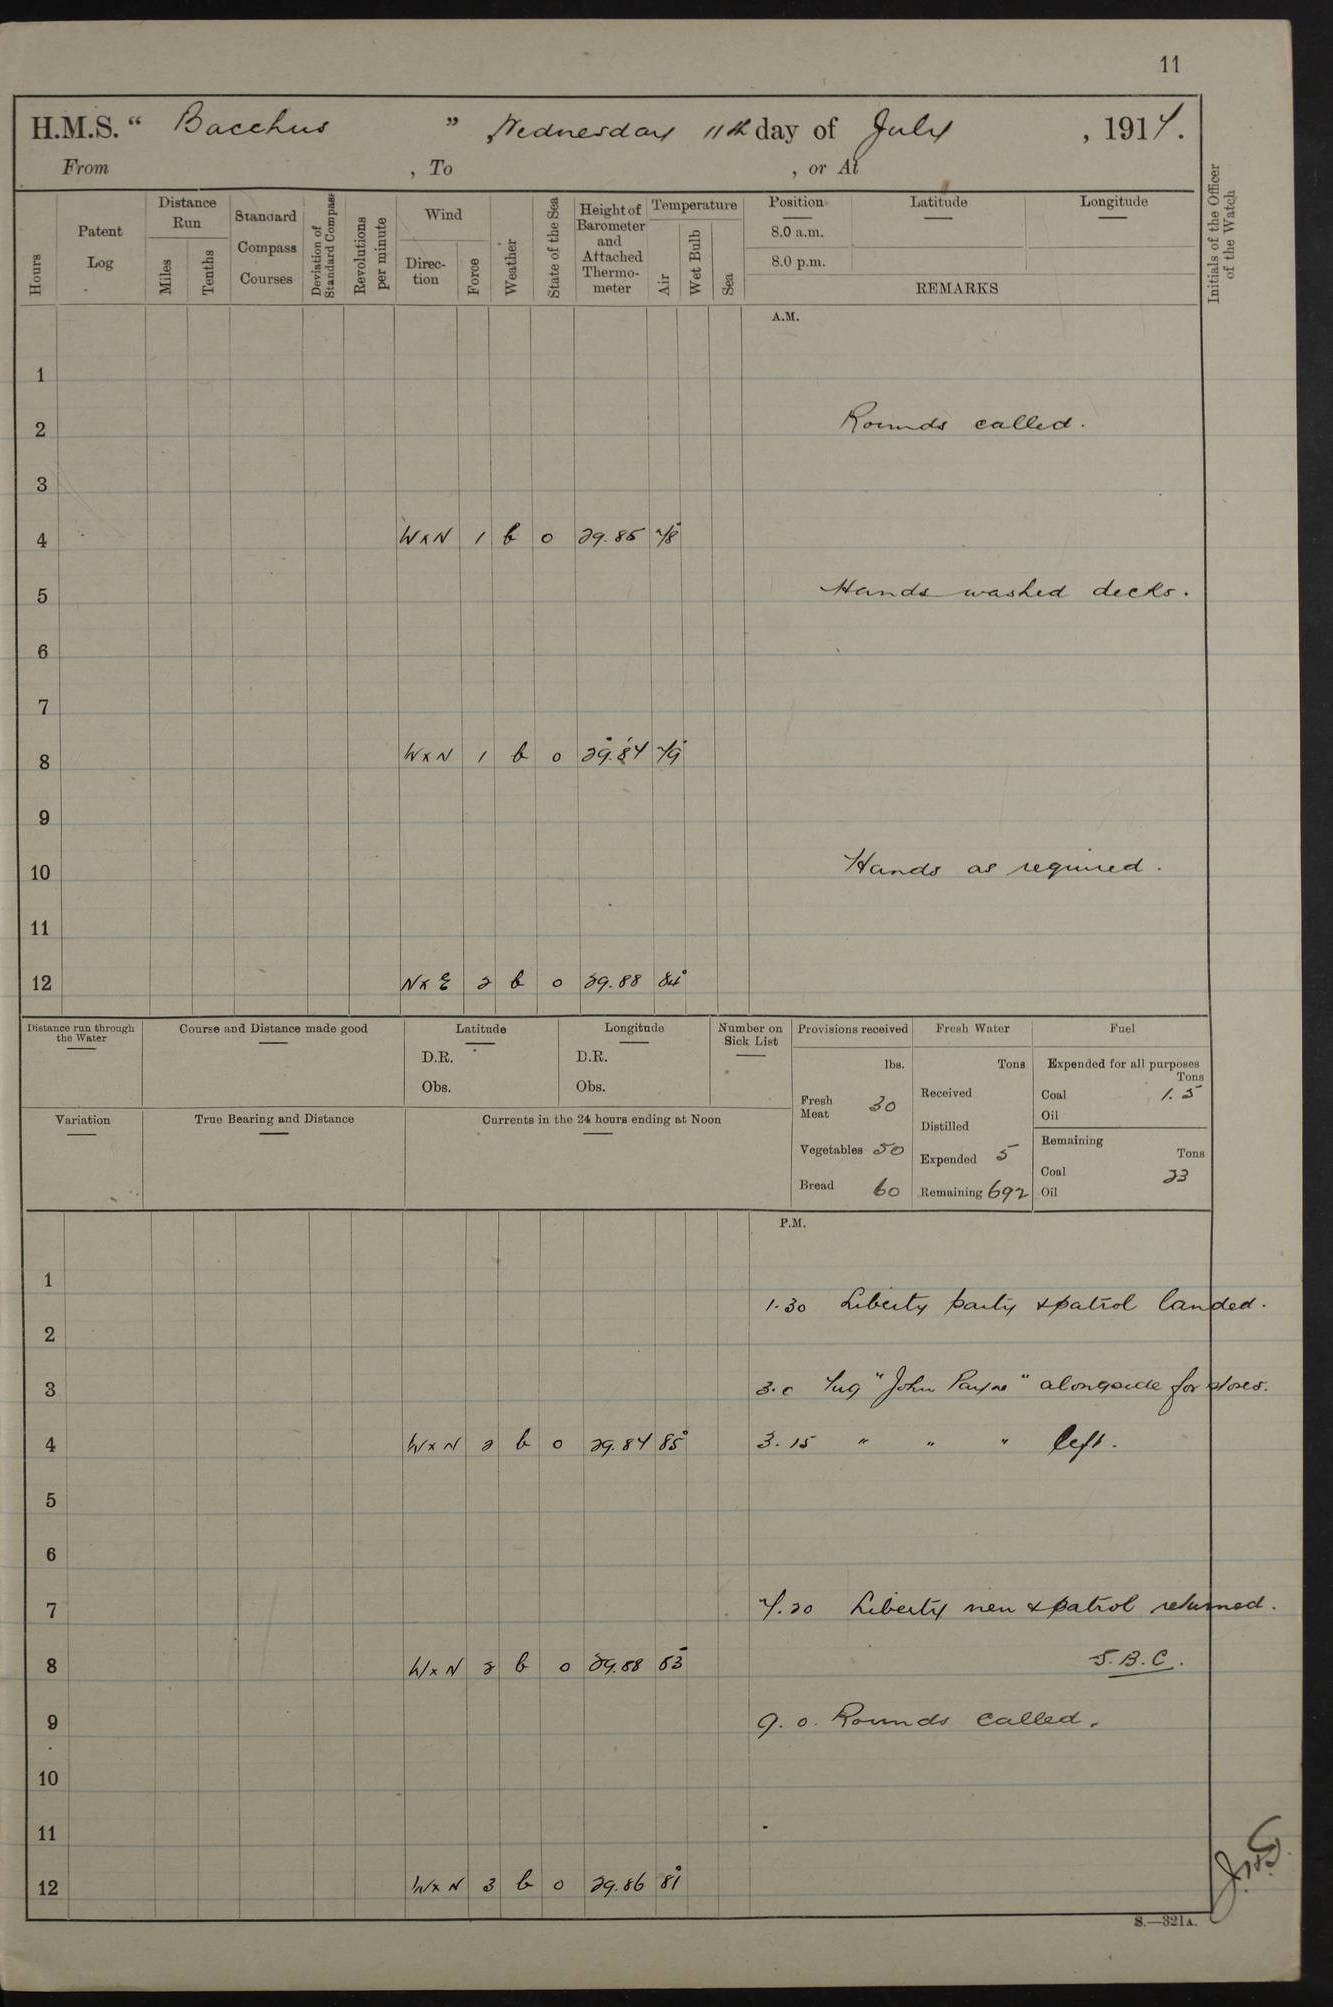 11
H.M.S. “ Bacchus ” Wednesday 11th day of July , 1917.
From , To , or At
Hours
Patent Log
Distance Run
Miles
Tenths
Standard Compass Courses
Deviation of Standard Compass
Revolutions per minute
Wind
Direction
Force
Weather
State of the Sea
Height of Barometer and Attached Thermometer
Temperature
Air
Wet Bulb
Sea
Position
8.0 a.m.
8.0 p.m.
Latitude
Longitude
REMARKS
Initials of the Officer of the Watch
A.M.
1
2 Rounds called.
3
4 WxN 1 b 0 29.85 78°
5 Hands washed decks.
6
7
8 WxN 1 b 0 29.84 79°
9
10 Hands as required.
11
12 NxE 2 b 0 29.88 84°
Distance run through the Water
Course and Distance made good
Latitude
D.R.
Obs.
Longitude
D.R.
Obs.
Number on Sick List
Variation
True Bearing and Distance
Currents in the 24 hours ending at Noon
Provisions received
lbs.
Fresh Meat 30
Vegetables 50
Bread 60
Fresh Water
Tons
Received
Distilled
Expended 5
Remaining 692
Fuel
Expended for all purposes
Tons
Coal 1.5
Oil
Remaining
Tons
Coal 23
Oil
P.M.
1
1.30 Liberty party & patrol landed.
2
3 3.0 Tug "John Payne" alongside for stores.
4 WxN 2 b 0 29.84 85° 3.15 " " " left.
5
6
7 7.20 Liberty men & patrol returned.
8 WxN 2 b 0 29.88 83° S.B.C.
9 9.0. Rounds called.
10
11
12 WxN 3 b 0 29.86 81°
S.—321A.